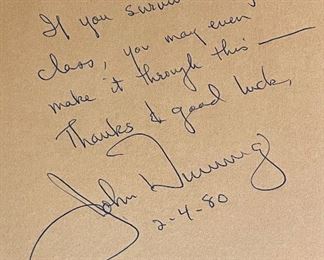 If you survi
class, you may even
make it through this —
Thanks & good luck,
John Dunning
2-4-80